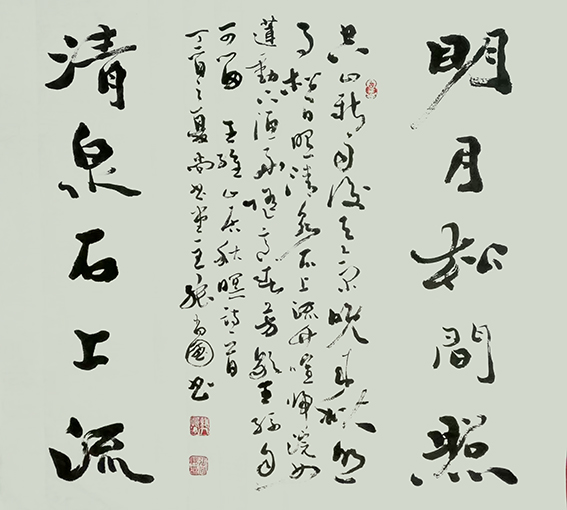 明月松間照
空山新雨後天氣晚來秋明
月松間照清泉石上流竹喧歸浣女
蓮動下漁舟隨意春芳歇王孫自
可留 王維山居秋暝詩一首
丁酉之夏尚書堂主張尚國書
清泉石上流